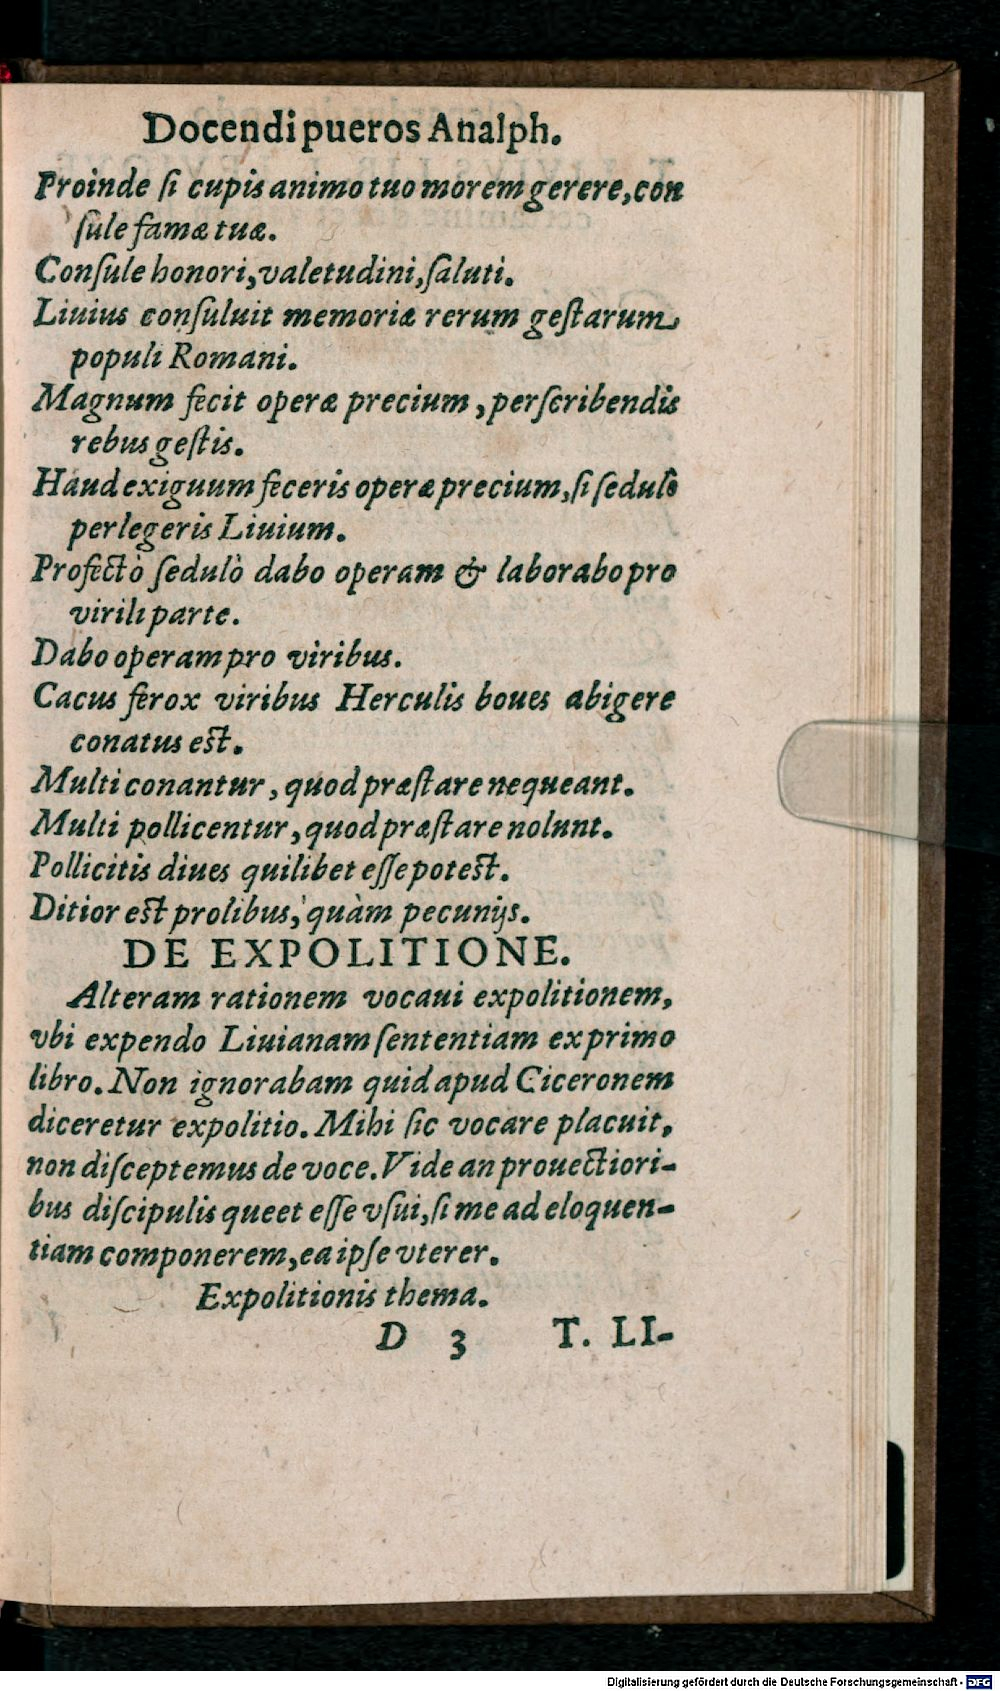 Docendi pueros Analph.
Proinde ſi cupis animo tuo morem gerere, con
ſule famæ tuæ.
Conſule honori, valetudini, ſaluti.
Liuius conſuluit memoriæ rerum geſtarum
populi Romani.
Magnum fecit operæ precium, perſcribendis
rebus geſtis.
Haud exiguum feceris operæ precium, ſi ſedulò
perlegeris Liuium.
Profectò ſedulò dabo operam & laborabo pro
virili parte.
Dabo operam pro viribus.
Cacus ferox viribus Herculis boues abigere
conatus est.
Multi conantur, quod præſtare nequeant.
Multi pollicentur, quod præſtare nolunt.
Pollicitis diues quilibet eſſe potest.
Ditior est prolibus, quàm pecunijs.
DE EXPOLITIONE.
Alteram rationem vocaui expolitionem,
vbi expendo Liuianam ſententiam ex primo
libro. Non ignorabam quid apud Ciceronem
diceretur expolitio. Mihi ſic vocare placuit,
non diſceptemus de voce. Vide an prouectiori-
bus diſcipulis queet eſſe vſui, ſi me ad eloquen-
tiam componerem, ea ipſe vterer.
Expolitionis thema.
D 3 T. LI-
Digitalisierung gefördert durch die Deutsche Forschungsgemeinschaft - DFG